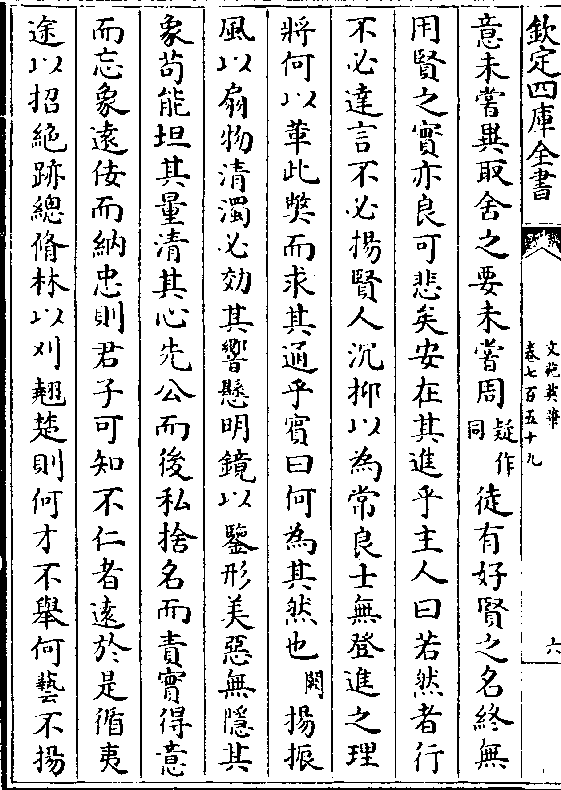 欽定四庫全書
文苑英華
卷七百五十九
六
意未嘗異取舍之要未嘗周疑作同徒有好賢之名終無
用賢之實亦良可悲矣安在其進乎主人曰若然者行
不必達言不必揚賢人沉抑以為常良士無登進之理
將何以革此弊而求其通乎賔曰何為其然也闕揚振
風以扇物清濁必効其響懸明鏡以鑒形美惡無隱其
象苟能坦其量清其心先公而後私捨名而責實得意
而忘象遠佞而納忠則君子可知不仁者遠於是循夷
途以招絶跡總脩林以刈翹楚則何才不舉何藝不揚